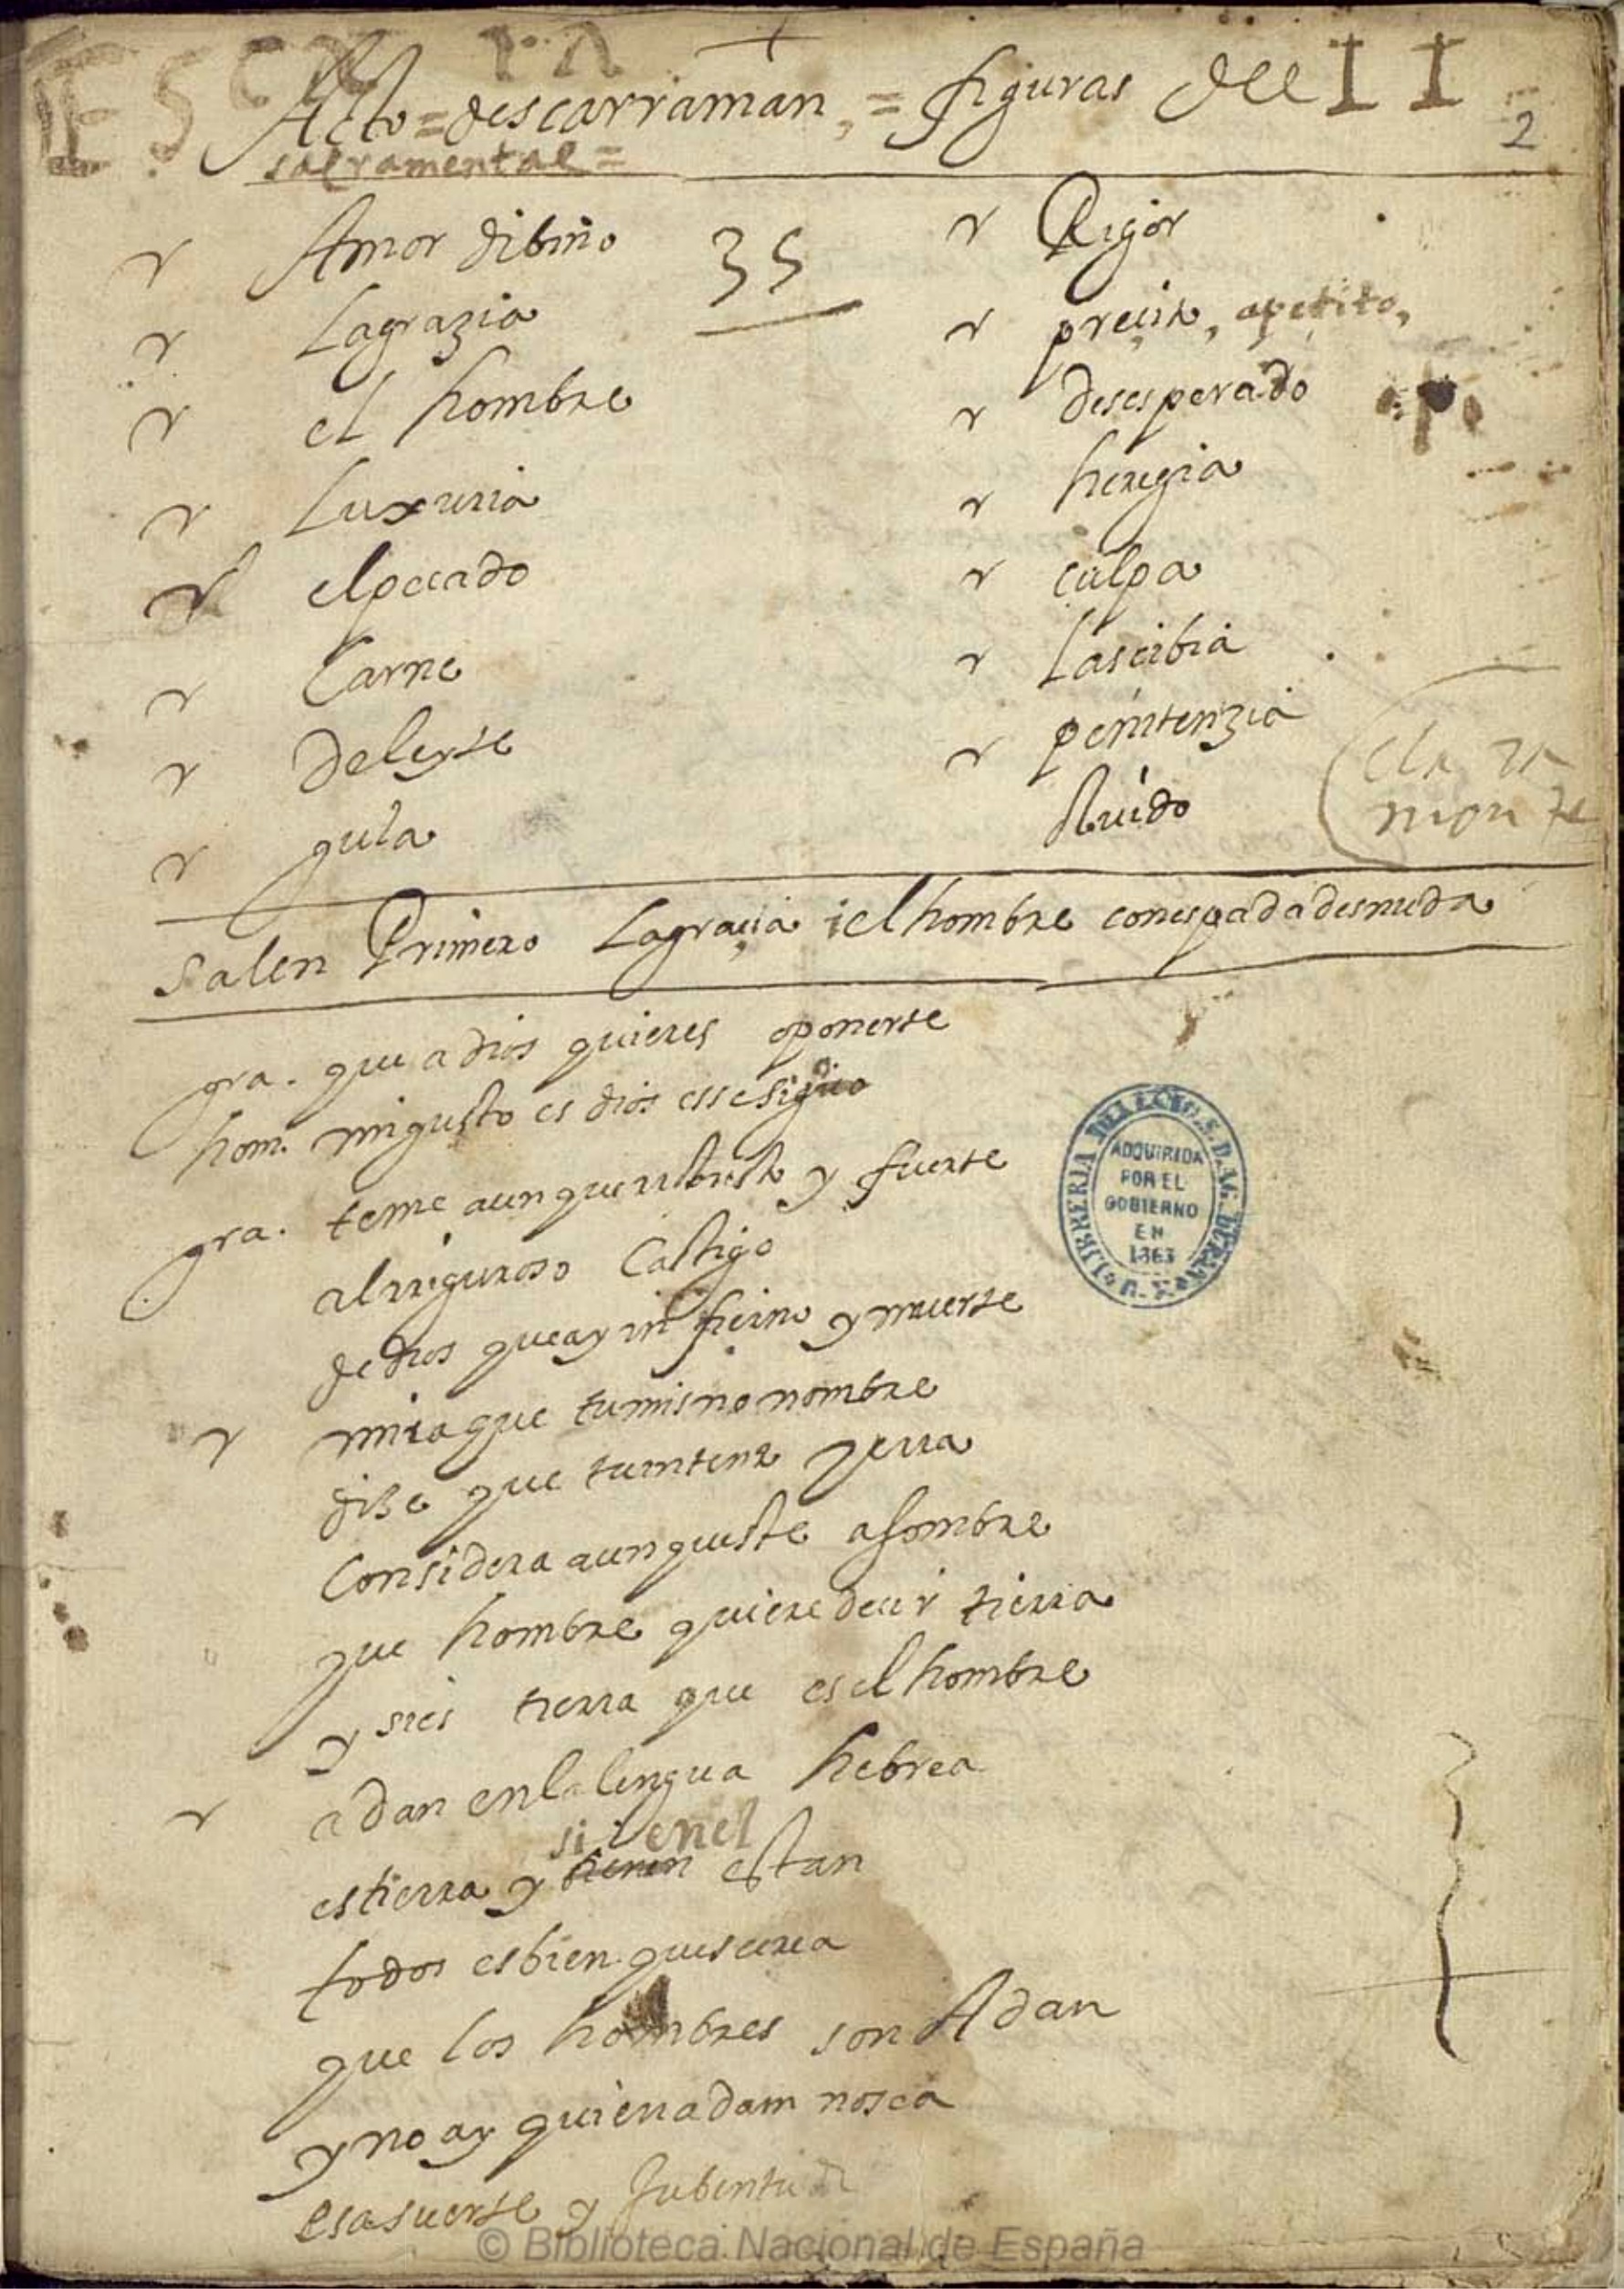 Acto = descarraman, = figuras del II
2
sacramental =
Amor dibino
35
Lagrazia
el hombre
Luxuria
elpecado
Carne
Deleyte
gula
Rigor
precita, apetito,
desesperado
heregia
culpa
Lascibia
penitenzia
Ruido
Clara
monte
Salen Primero Lagracia i el hombre conespadadesnuda
gra. que a dios quieres oponerte
hom. migusto es dios esse sigo
gra. teme aunque y fuerte
alrriguroso Castigo
de dios queay infierno y muerte
miraque tumismo nombre
dize que
Considera aunqueste asombre
que hombre quieredecir tierra
y sies tierra que esel hombre
adan enlalengua hebrea
si i enel
estierra y estan
todos esbien
que los hombres son Adan
y no ay quienadam nosea
esasuerte y Jubentud
LIBRERIA
ADQUIRIDA
POR EL
GOBIERNO
EN
1863
© Biblioteca Nacional de España